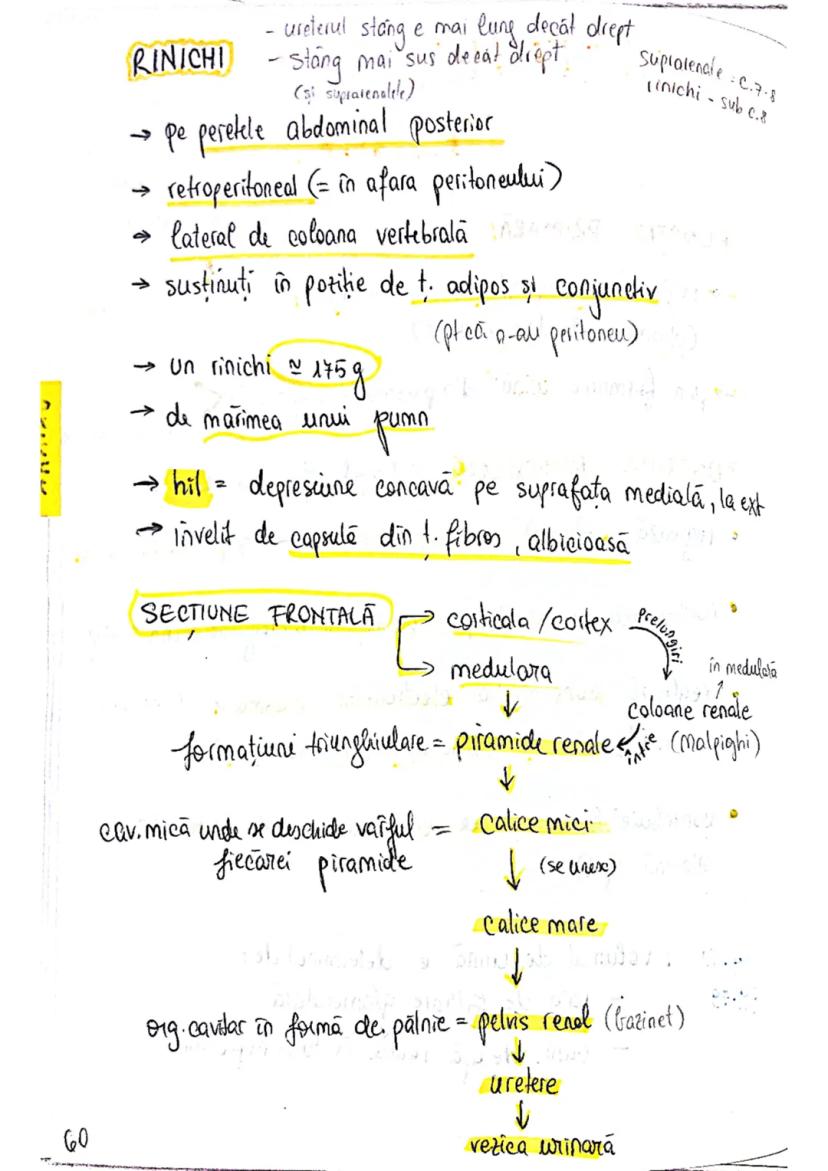 - ureterul stâng e mai lung decât drept
RINICHI
- stâng mai sus decât drept
(și suprarenalele)
suprarenale : C.7-8
rinichi - sub C.8
→ pe peretele abdominal posterior
→ retroperitoneal (= în afara peritoneului)
→ lateral de coloana vertebrală
→ susținuți în poziție de ț. adipos și conjunctiv
(pt că n-au peritoneu)
→ un rinichi ≃ 175 g
→ de mărimea unui pumn
→ hil = depresiune concavă pe suprafața medială, la ext
→ învelit de capsulă din ț. fibros, albicioasă
SECȚIUNE FRONTALĂ → corticala / cortex prelungiri
→ medulara
în medulară
↑
coloane renale
(Malpighi)
↓
formațiuni triunghiulare = piramide renale ← între
↓
cav. mică unde se deschide vârful = calice mici
fiecărei piramide
↓ (se unesc)
calice mare
↓
org. cavitar în formă de pâlnie = pelvis renal (bazinet)
↓
uretere
↓
vezica urinară
60